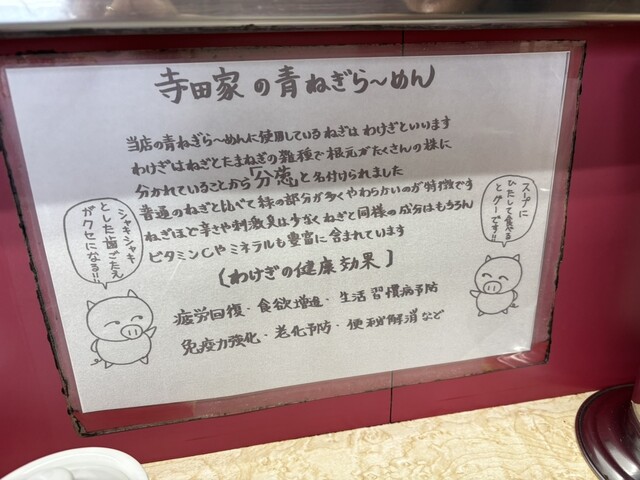 寺田家の青ねぎら〜めん
当店の青ねぎら〜めんに使用しているねぎは わけぎといいます
わけぎはねぎとたまねぎの雑種で根元がたくさんの株に
分かれていることから「分葱」と名付けられました
普通のねぎと比べて緑の部分が多くやわらかいのが特徴です
ねぎほど辛さや刺激臭は少なくねぎと同様の成分はもちろん
ビタミンCやミネラルも豊富に含まれています
[わけぎの健康効果]
疲労回復・食欲増進・生活習慣病予防
免疫力強化・老化予防・便秘解消など
シャキシャキ
とした歯ごたえ
がクセになる!!
スープに
ひたして食べる
とグーです!!